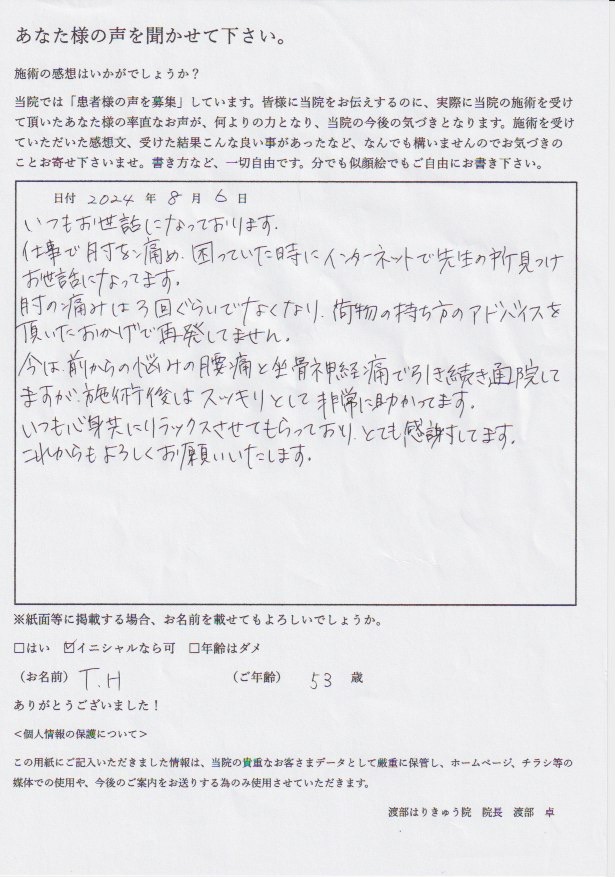 あなた様の声を聞かせて下さい。
施術の感想はいかがでしょうか？
当院では「患者様の声を募集」しています。皆様に当院をお伝えするのに、実際に当院の施術を受け
て頂いたあなた様の率直なお声が、何よりの力となり、当院の今後の気づきとなります。施術を受け
ていただいた感想文、受けた結果こんな良い事があったなど、なんでも構いませんのでお気づきの
ことお寄せ下さいませ。書き方など、一切自由です。分でも似顔絵でもご自由にお書き下さい。
日付 2024 年 8 月 6 日
いつもお世話になっております.
仕事で肘を痛め、困っていた時にインターネットで先生の所見つけ
お世話になってます。
肘の痛みは3回ぐらいでなくなり、荷物の持ち方のアドバイスを
頂いたおかげで再発してません。
今は、前からの悩みの腰痛と坐骨神経痛で引き続き通院して
ますが、施術後はスッキリとして非常に助かってます。
いつも心身共にリラックスさせてもらっており、とても感謝してます.
これからもよろしくお願いいたします。
※紙面等に掲載する場合、お名前を載せてもよろしいでしょうか。
□はい ☑イニシャルなら可 □年齢はダメ
（お名前） T.H （ご年齢） 53 歳
ありがとうございました！
<個人情報の保護について>
この用紙にご記入いただきました情報は、当院の貴重なお客さまデータとして厳重に保管し、ホームページ、チラシ等の
媒体での使用や、今後のご案内をお送りする為のみ使用させていただきます。
渡部はりきゅう院 院長 渡部 卓